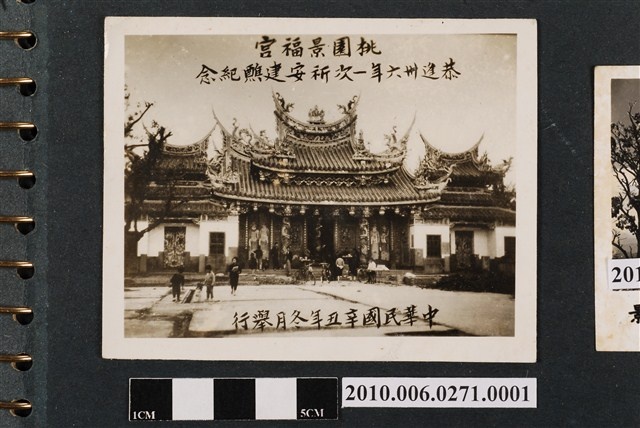 桃園景福宮
恭進卅六年一次祈安建醮紀念
中華民國辛丑年冬月舉行
1CM
5CM
2010.006.0271.0001
201